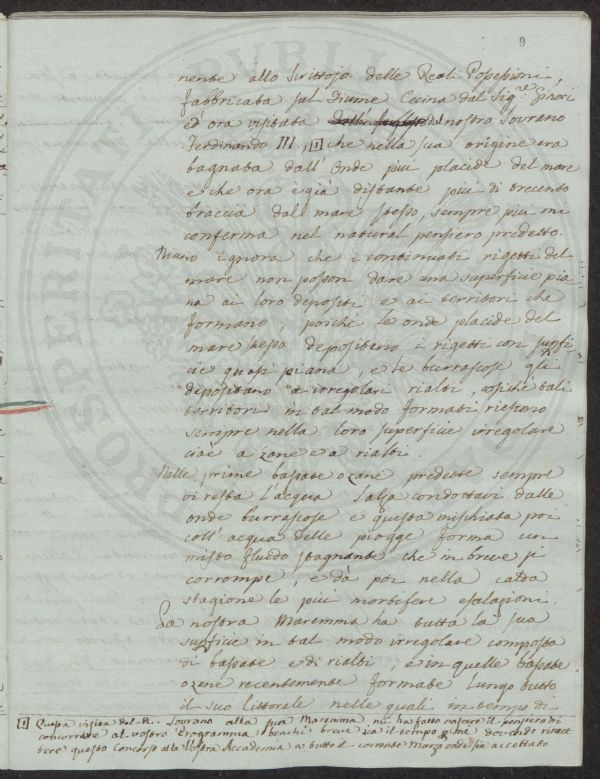 9
nente allo Scrittojo delle Reali Possessioni,
fabbricata sul Fiume Cecina dal Sig.re Ginori
ed ora visitata dal nostro Sovrano
Ferdinando III., [1] che nella sua origine era
bagnata dall'Onde più placide del mare
e che ora è già distante più di trecento
braccia dal mare stesso, sempre più mi
conferma nel natural pensiero predetto.
Niuno ignora che i continuati rigetti del
mare non posson dare una superficie pia
na ai loro depositi e ai territori che
formano, poichè le onde placide del
mare stesso depositano i rigetti con supfi-
cie quasi piana, e le burrascose gli
depositano a irregolari rialti, cosichè tali
territori in tal modo formati riescono
sempre nella loro superficie irregolare
cioè a zane e a rialti.
Nelle prime bassate o zane predette sempre
vi resta l'acqua salsa condottavi dalle
onde burrascose e questa mischiata poi
coll'acqua delle piogge forma un
misto fluido stagnante che in breve si
corrompe, e dà poi nella calda
stagione le più morbifere esalazioni.
La nostra Maremma ha tutta la sua
supficie in tal modo irregolare composta
di bassate e di rialti, e in quelle bassate
o zane recentemente formate lungo tutto
il suo littorale nelle quali in tempo di
[1] Questa visita del R. Sovrano alla sua Maremma, mi ha fatto nascere il pensiero di
concorrere al vostro Programma benchè breve sia il tempo, dovendo rimet
tere questo Concorso alla Vostra Accademia a tutto il corrente Marzo onde sia accettato
PVBLI
PROSPERITATI